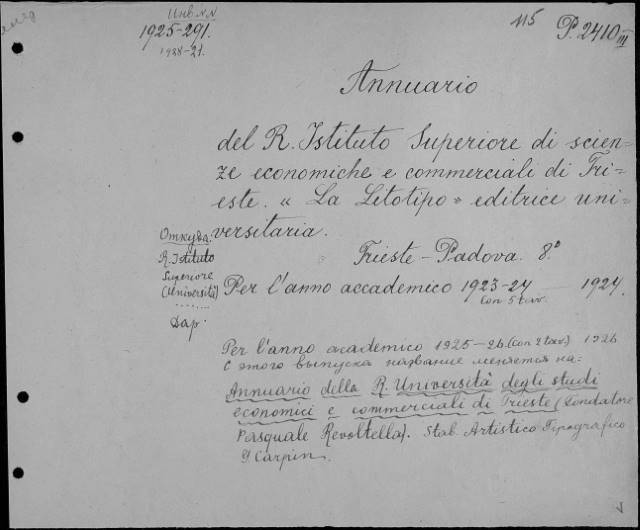 Инв. N.N.
1925-291.
1928-21.
115
P. 2410 III
Annuario
del R. Istituto Superiore di scien=
ze economiche e commerciali di Tri=
este. « La Litotipo » editrice uni=
versitaria.
Trieste-Padova. 8.°
Per l'anno accademico 1923-24 1924.
con 5 tav.
Откуда:
R. Istituto
Superiore
(Università)
Дар.
Per l'anno academico 1925-26 (con 2 tav.) 1926
С этого выпуска название меняется на:
Annuario della R. Università degli studi
economici e commerciali di Trieste (Fondatore
Pasquale Revoltella). Stab. Artistico Tipografico
G. Carpin.